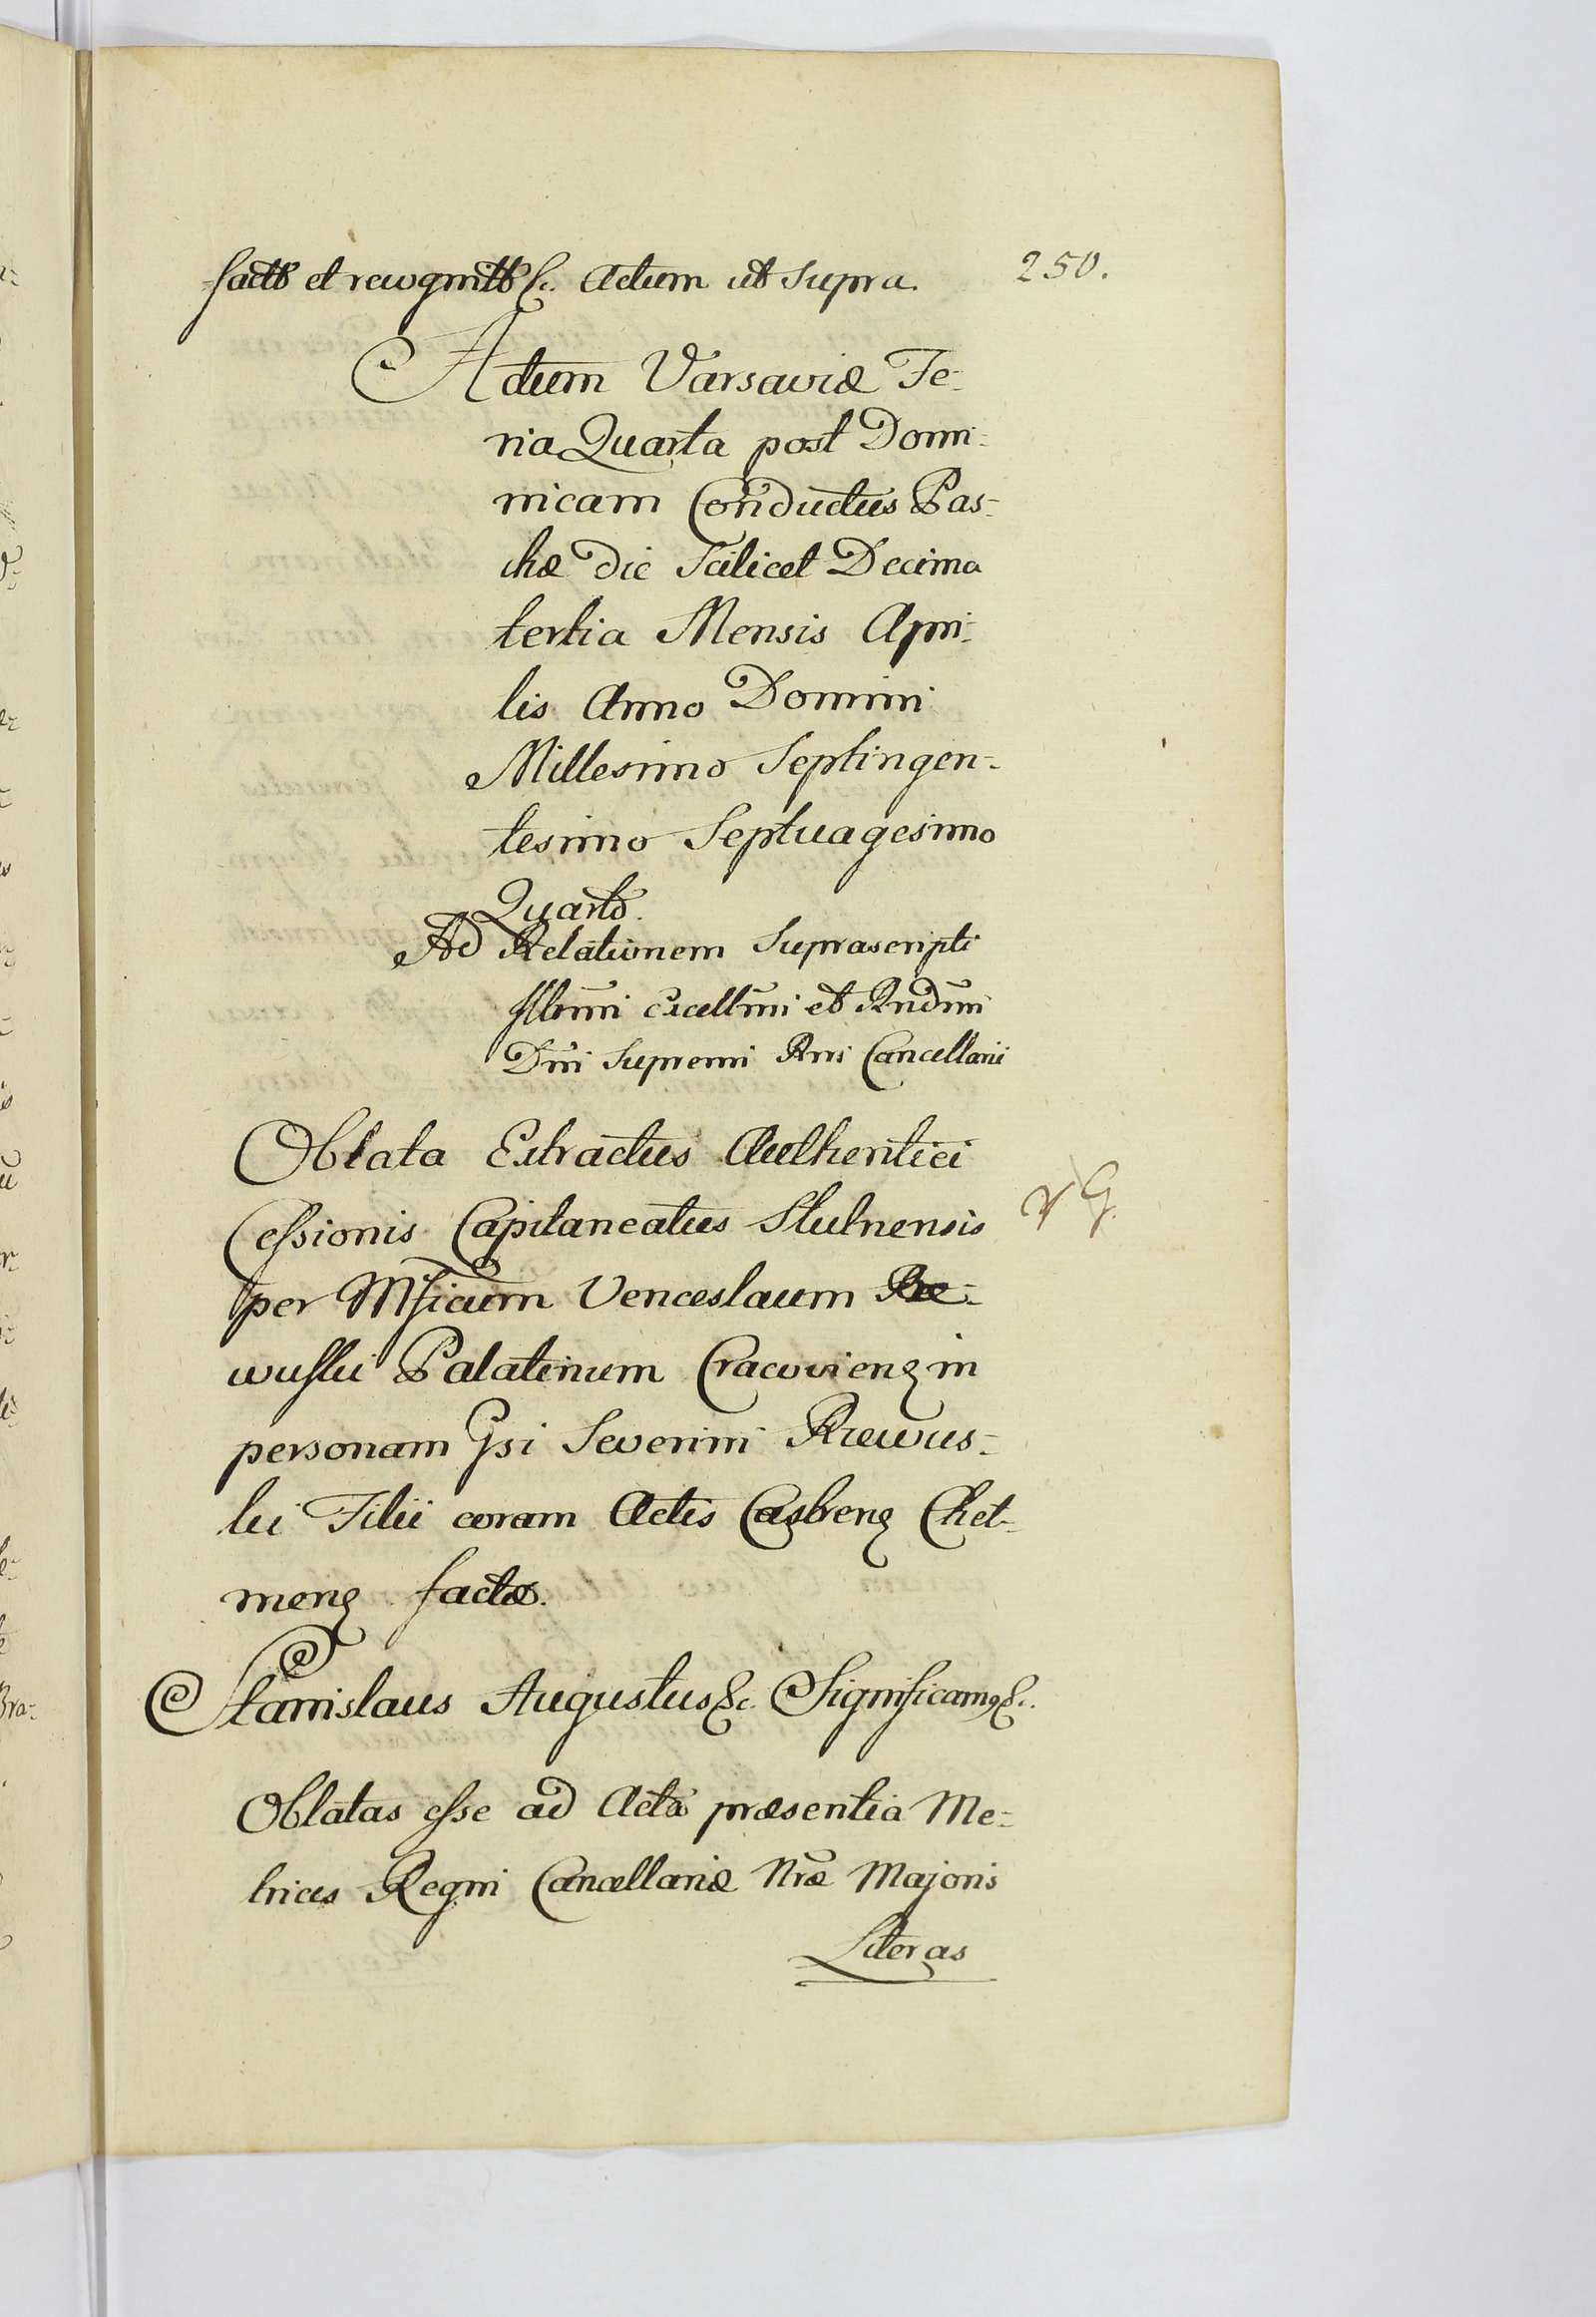 factb et recognitb &c. Actum ut Supra. 250.
Actum Varsaviæ Fe-
ria Quarta post Domi-
nicam Conductus Pas-
chæ Die Scilicet Decima
tertia Mensis Apri-
lis Anno Domini
Millesimo Septingen-
tesimo Septuagesimo
Quarto.
Ad Relationem Suprascripti
Illmi Excellmi et Rndmi
Dni Supremi Rni Cancellarii
Oblata Extractus Authentici
Cessionis Capitaneatus Stulnensis
per Mficum Venceslaum Rze-
wuski Palatinum Cracovieng in
personam Gsi Severini Rzewus-
ki Filii coram Actis Castreng Cheł-
meng factæ.
Stanislaus Augustus &c. Significamq &c.
Oblatas esse ad Acta præsentia Me-
trices Regni Cancellariæ Nræ Majoris
Literas